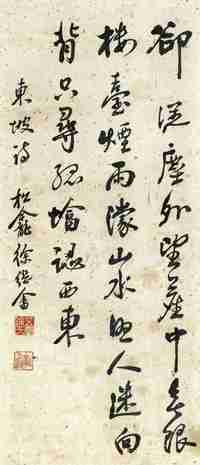 卻從塵外望塵中無限
樓臺煙雨濛山水照人迷向
背只尋孤塔認西東
東坡詩 松龕徐繼畬